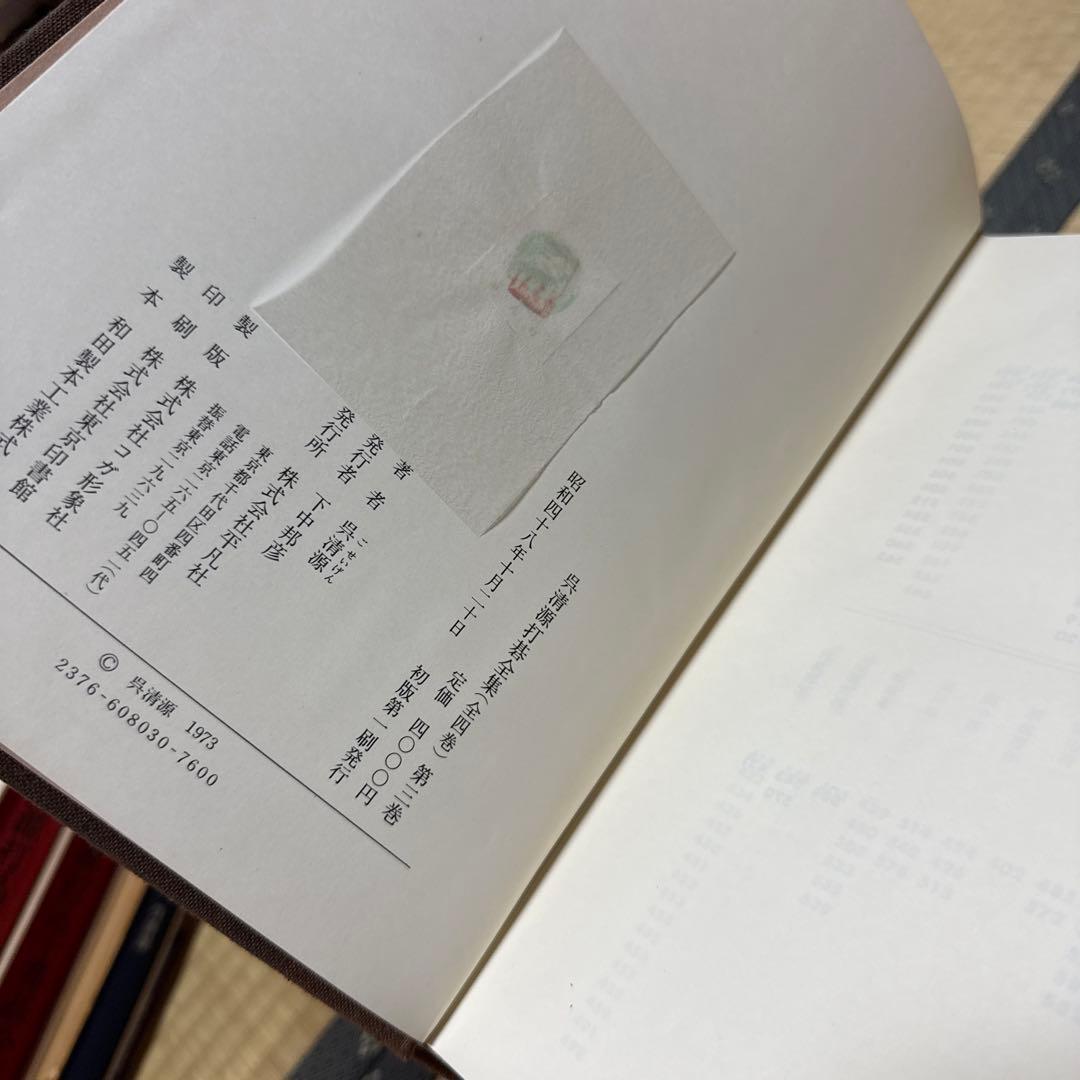 呉清源打碁全集(全四巻)第三巻
定価 四〇〇〇円
昭和四十八年十月二十日 初版第一刷発行
著者 呉清源
こせいげん
発行者 下中邦彦
発行所 株式会社平凡社
東京都千代田区四番町四
電話東京二六五―〇四五一(代)
振替東京二九六三九
製版 株式会社コガ形象社
印刷 株式会社東京印書館
製本 和田製本工業株式
© 呉清源 1973
2376-608030-7600